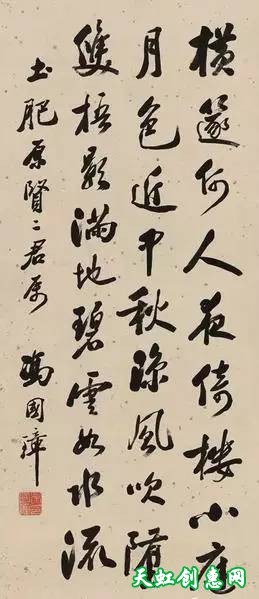 横邃何人夜倚楼小庭
月色近中秋凉风吹堕
双梧影满地碧云如水流
土肥原贤二君属
冯国璋
天虹创惠网